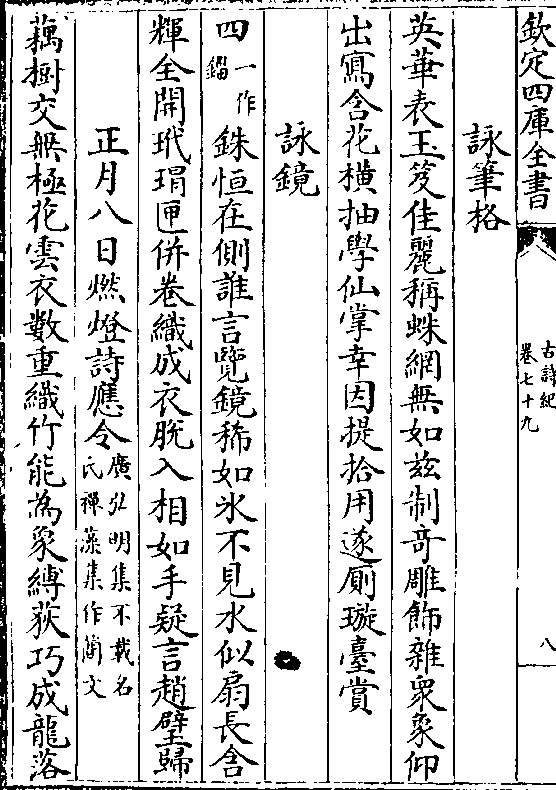 欽定四庫全書
古詩紀
卷七十九
八
詠筆格
英華表玉笈佳麗稱蛛網無如兹制奇雕飾雜衆象仰
出寫含花橫抽學仙掌幸因提拾用遂厠璇臺賞
詠鏡
四一作錙銖恒在側誰言覽鏡稀如氷不見水似扇長含
輝全開玳瑁匣併卷織成衣脫入相如手疑言趙璧歸
正月八日燃燈詩應令廣弘明集不載名氏禪藻集作蕳文
藕樹交無極花雲衣數重織竹能為象縛荻巧成龍落